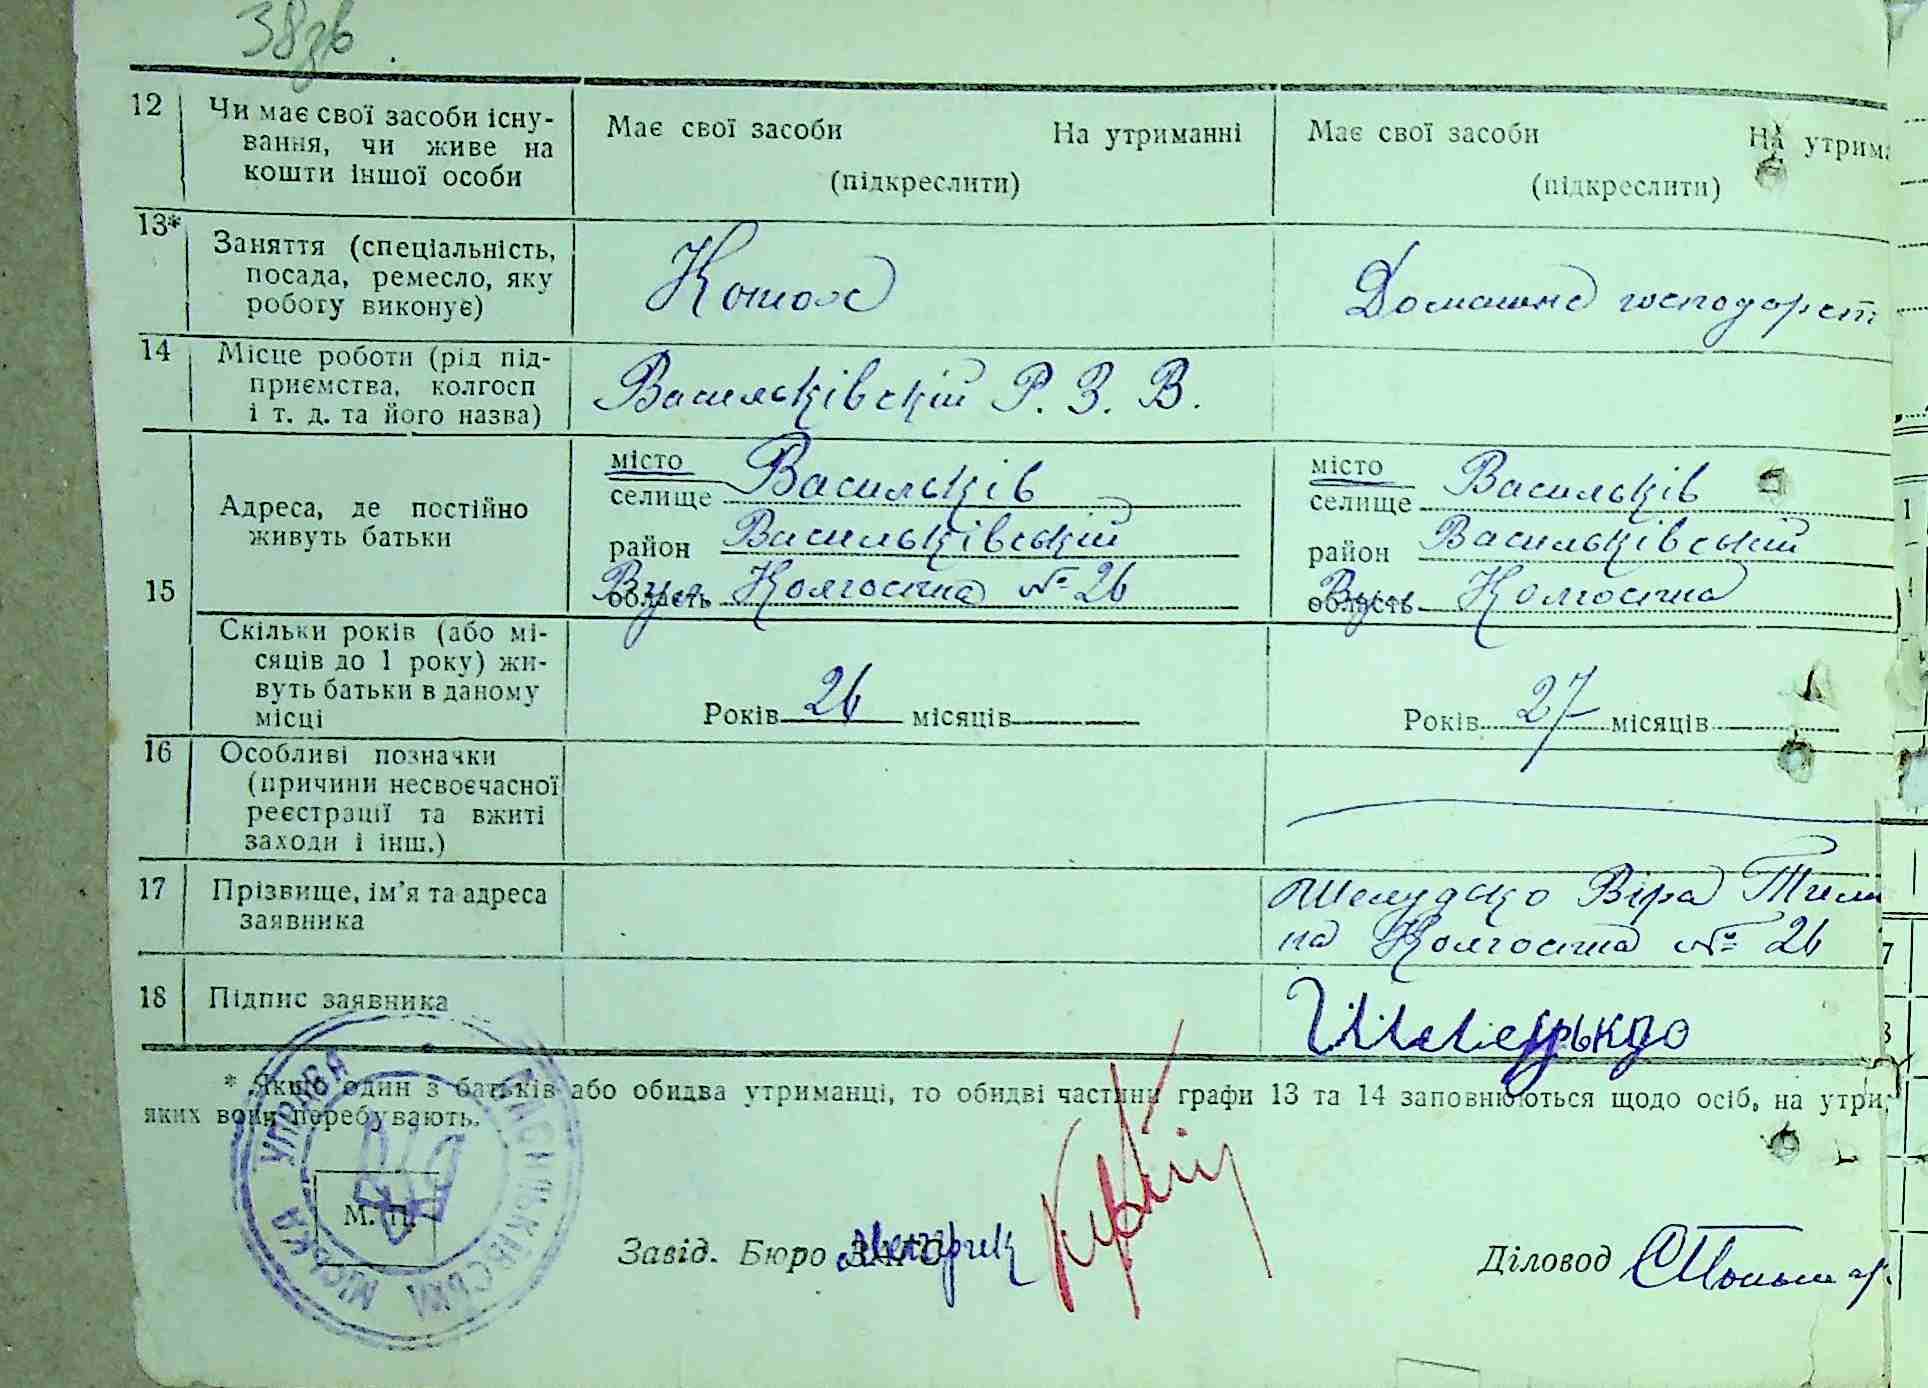 38зв
12 Чи має свої засоби існу-
вання, чи живе на
кошти іншої особи
Має свої засоби На утриманні
(підкреслити)
Має свої засоби На утрима
(підкреслити)
13* Заняття (спеціальність,
посада, ремесло, яку
роботу виконує)
Конюх
Домашнє господарст
14 Місце роботи (рід під-
приємства, колгосп
і т. д. та його назва)
Васильківскій Р. З. В.
15 Адреса, де постійно
живуть батьки
місто Васильків
селище
район Васильківській
область Вул Колгоспна № 26
місто Васильків
селище
район Васильківській
область Вул Колгоспна
Скільки років (або мі-
сяців до 1 року) жи-
вуть батьки в даному
місці
Років 26 місяців
Років 27 місяців
16 Особливі позначки
(причини несвоєчасної
реєстрації та вжиті
заходи і інш.)
17 Прізвище, ім'я та адреса
заявника
Шелудько Віра Тим
на Колгоспна № 26
18 Підпис заявника
* Якщо один з батьків або обидва утриманці, то обидві частини графи 13 та 14 заповнюються щодо осіб, на утри
яких вони перебувають.
ВАСИЛЬКІВСЬКА МІСЬКА УПРАВА
М. П.
Завід. Бюро ЗАГС Метрик
Діловод